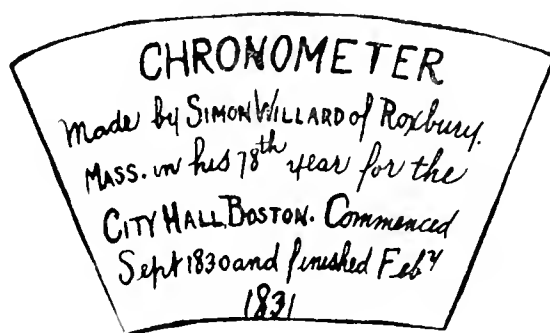 CHRONOMETER
Made by SIMON WILLARD of Roxbury.
MASS. in his 78th year for the
CITY HALL, BOSTON. Commenced
Sept 1830 and finished Feby
1831